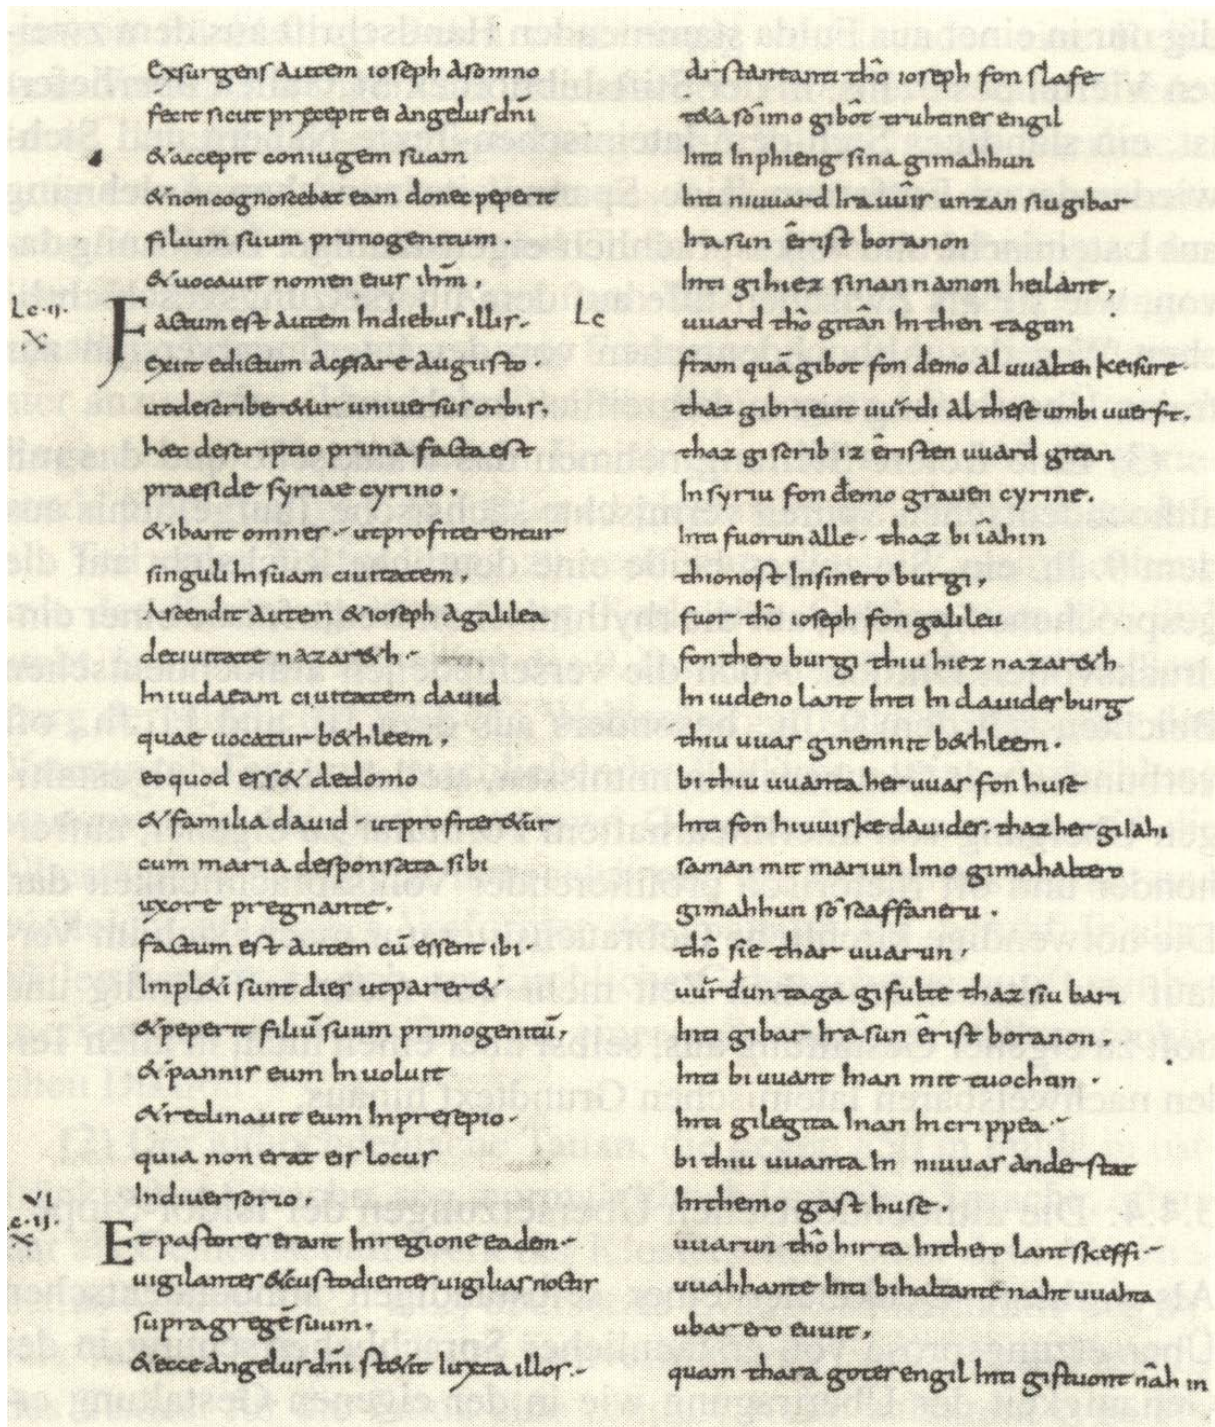 Exsurgens autem ioseph asomno
fecit sicut precepit ei angelus dn̄i
&accepit coniugem suam
&noncognoscebat eam donec peperit
filium suum primogenitum.
&uocauit nomen eius ihm̄,
Lc .ij.
X
Factum est autem Indiebus illis.
exiit edictum acęsare augusto.
utdescriber&ur uniuersus orbis,
haec descriptio prima facta est
praeside syriae cyrino.
&ibant omnes. utprofiterentur
singuli Insuam ciuitatem,
Ascendit autem &ioseph agalilea
deciuitate nazar&h.
In iudaeam ciuitatem dauid
quae uocatur b&hleem,
eoquod ess& dedomo
&familia dauid. utprofiter&ur
cum maria desponsata sibi
uxore pregnante.
factum est autem cū essent ibi.
Impl&i sunt dies utparer&
&peperit filiū suum primogenitū,
&pannis eum Inuoluit
&reclinauit eum Inpresepio.
quia non erat eis locus
Indiuersorio,
VI
c.ij.
X
Et pastores erant Inregione eadem.
uigilantes &custodientes uigilias noctis
supra gregē suum.
&ecce angelus dn̄i st&it Iuxta illos.
arstantanti thô ioseph fon slafe
t&a sô imo gibôt truhtines engil
Inti Inphieng sina gimahhun
Inti niuuard Ira uuîs unzan siu gibar
Ira sun êrist boranon
Inti gihiez sinan namon heilant,
Lc
uuard thô gitân Inthen tagun
framquā gibot fon demo aluualten keisure.
thaz gibrieuit uurdi al these umbiuuerft.
thaz giscrib iz êristen uuard gitan
In syriu fon demo grauen cyrine.
Inti fuorun alle. thaz bi iâhin
thionost Insinero burgi,
fuor thô ioseph fon galileu
fon thero burgi thiu hiez nazar&h
In iudeno lant Inti In dauides burg
thiu uuas ginemnit b&hleem.
bithiu uuanta her uuas fon huse
Inti fon hiuuiske dauides. thaz her giiahi
saman mit mariun Imo gimahaltero
gimahhun sô scaffaneru.
thô sie thar uuarun,
uurdun taga gifulte thaz siu bari
Inti gibar Ira sun êrist boranon,
Inti biuuant Inan mit tuochun.
Inti gilegita Inan Incrippea.
bithiu uuanta In niuuas ander stat
Inthemo gasthuse.
uuarun thô hirta Inthero lantskeffi.
uuahhante Inti bihaltante naht uuahta
ubar ero euuit,
quam thara gotes engil Inti gistuont nâh in